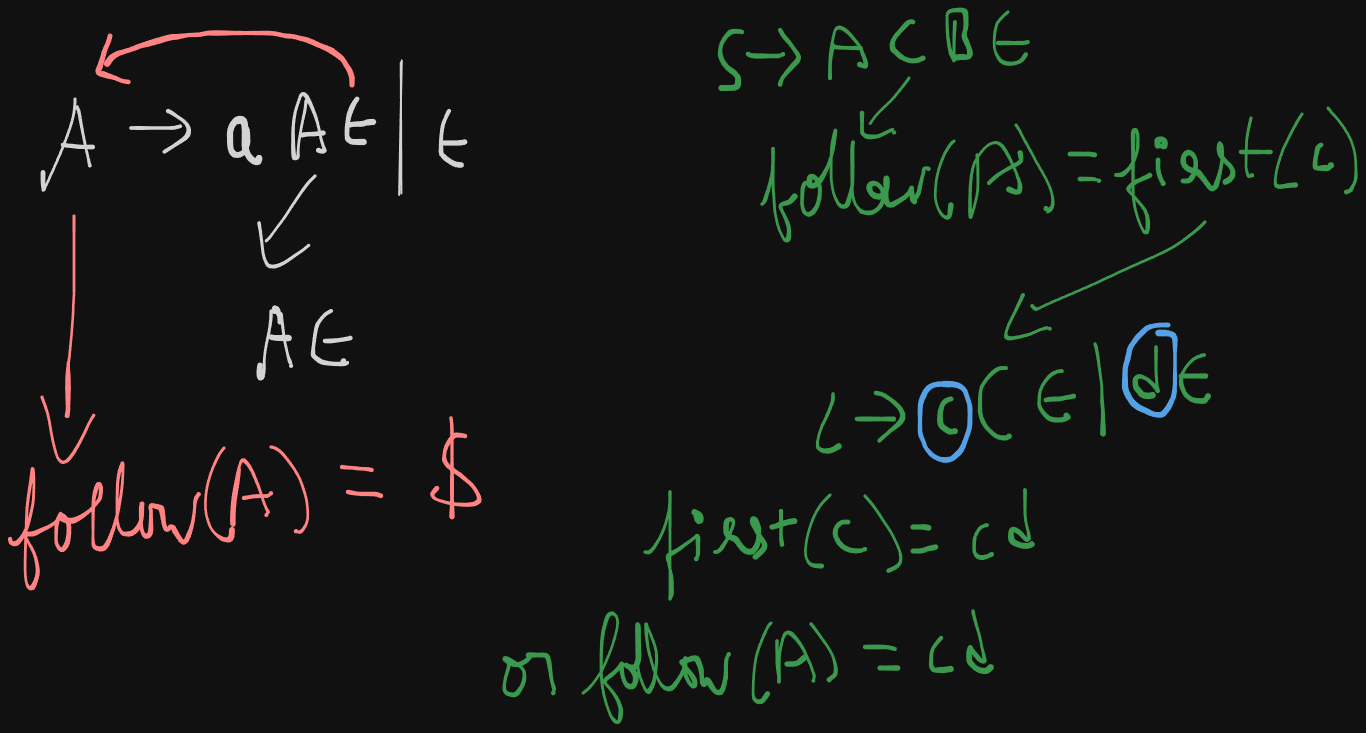 A → a A ∈ | ∈
A ∈
follow(A) = $
S → A C B ∈
follow(A) = first(C)
C → c C ∈ | d ∈
first(C) = cd
or follow(A) = cd